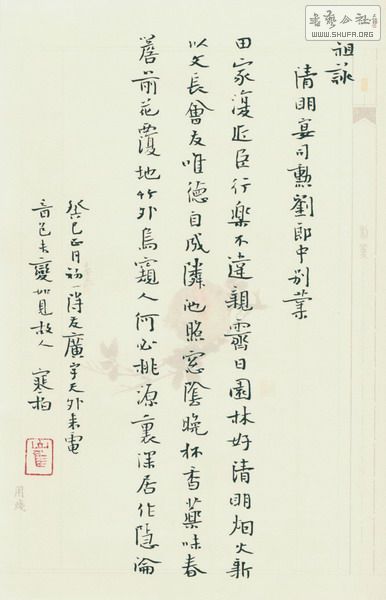 書藝公社
WWW.SHUFA.ORG
祖詠
清明宴司勳劉郎中別業
田家復近臣行樂不違親霽日園林好清明烟火新
以文長會友唯德自成隣池照窓陰晚杯香藥味春
簷前花覆地竹外鳥窺人何必桃源裏深居作隱淪
癸巳正月初一得友廣宇天外来電
音色未變如見故人 寒柏
用箋